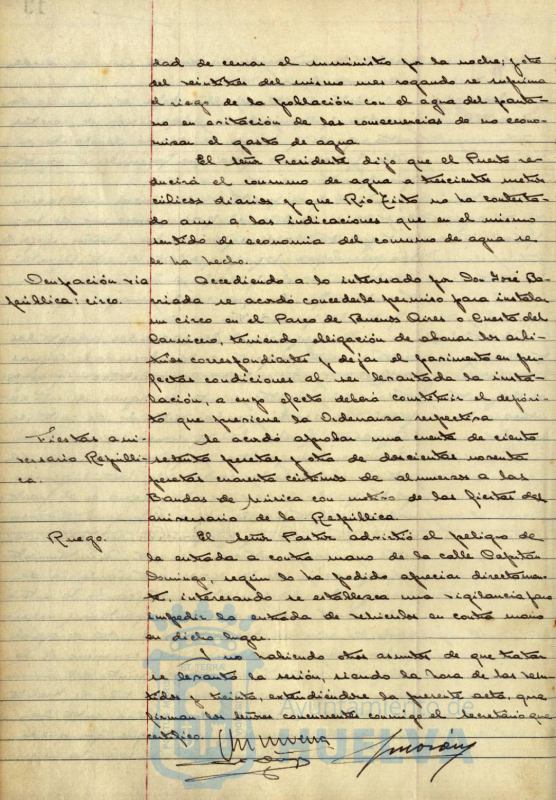 dad de cerrar el suministro por la noche; y otro
del veintitres del mismo mes rogando se suprima
el riego de la población con el agua del panta-
no en evitación de las consecuencias de no econo-
mizar el gasto de agua.
El Señor Presidente dijo que el Puerto re-
ducirá el consumo de agua a trescientos metros
cúbicos diarios y que Rio Tinto no ha contesta-
do aun a las indicaciones que en el mismo
sentido de economia del consumo de agua se
le ha hecho.
Ocupación via
pública: circo.
Accediendo a lo interesado por Don José
se acordó concederle permiso para instalar
un circo en el Paseo de Buenos Aires o Cuesta del
Carnicero, teniendo obligación de abonar los arbi-
trios correspondientes y dejar el pavimento en per-
fectas condiciones al ser levantada la insta-
lación, a cuyo efecto deberá constituir el depósi-
to que previene la Ordenanza respectiva
Fiestas ani-
versario Repúbli-
ca.
Se acordó aprobar una cuenta de ciento
setenta pesetas y otra de doscientas noventa
pesetas cuarenta céntimos de almuerzos a las
Bandas de Música con motivo de las fiestas del
aniversario de la República
Ruego.
El Señor Pastor advirtió el peligro de
la entrada a contra mano de la calle Capitán
Domingo, según lo ha podido apreciar directamen-
te, interesando se establezca una vigilancia para
impedir la entrada de vehiculos en contra mano
en dicho lugar.
Y no habiendo otros asuntos de que tratar
se levantó la sesión, siendo la hora de las vein-
tidos y treinta, extendiéndose la presente acta, que
firman los señores concurrentes conmigo el secretario que
certifico.
Ayuntamiento de
HUELVA